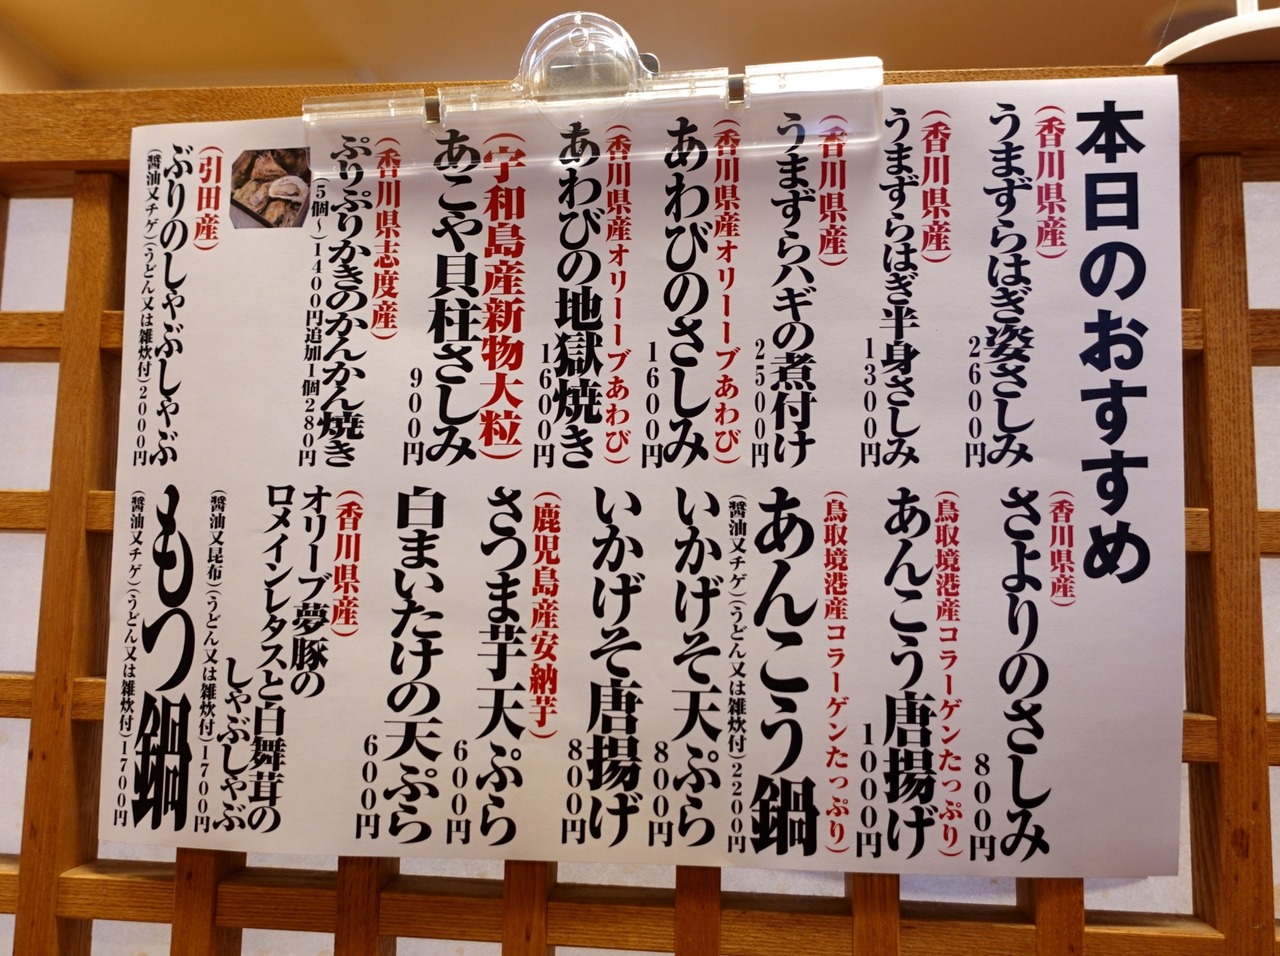 本日のおすすめ
(香川県産)
うまずらはぎ姿さしみ
2600円
(香川県産)
うまずらはぎ半身さしみ
1300円
(香川県産)
うまずらハギの煮付け
2500円
(香川県産オリーーブあわび)
あわびのさしみ
1600円
(香川県産オリーーブあわび)
あわびの地獄焼き
1600円
(宇和島産新物大粒)
あこや貝柱さしみ
900円
(香川県志度産)
ぷりぷりかきのかんかん焼き
(5個～)1400円追加1個280円
(引田産)
ぶりのしゃぶしゃぶ
(醤油又チゲ)(うどん又は雑炊付)2000円
(香川県産)
さよりのさしみ
800円
(鳥取境港産コラーゲンたっぷり)
あんこう唐揚げ
1000円
(鳥取境港産コラーゲンたっぷり)
あんこう鍋
(醤油又チゲ)(うどん又は雑炊付)2200円
いかげそ天ぷら
800円
いかげそ唐揚げ
800円
(鹿児島産安納芋)
さつま芋天ぷら
600円
白まいたけの天ぷら
600円
(香川県産)
オリーブ夢豚の
ロメインレタスと白舞茸の
しゃぶしゃぶ
(醤油又昆布)(うどん又は雑炊付)1700円
もつ鍋
(醤油又チゲ)(うどん又は雑炊付)1700円